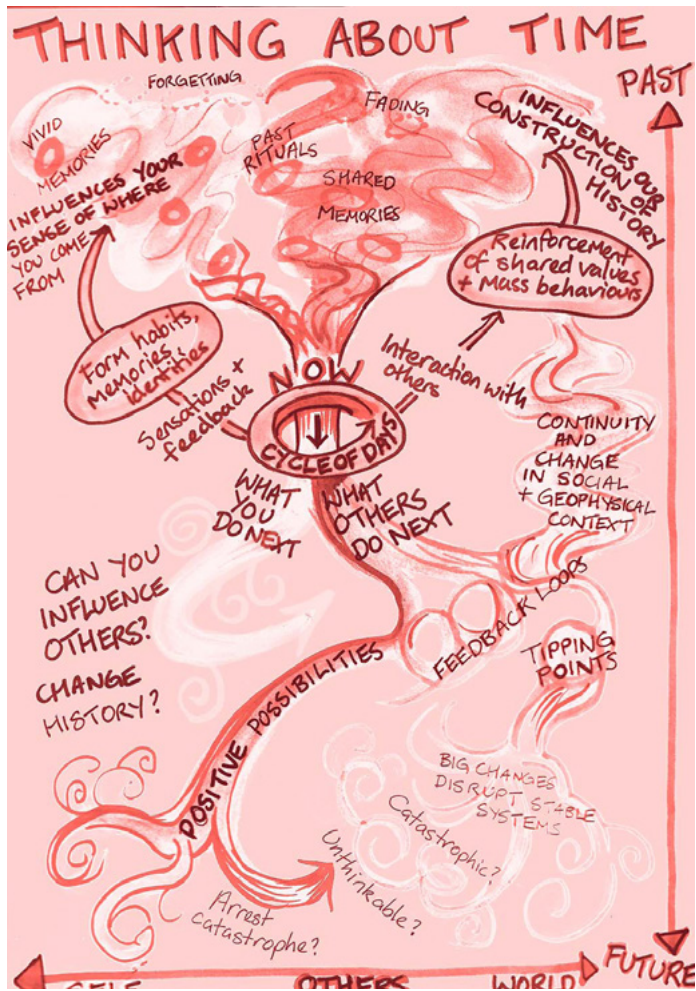 THINKING ABOUT TIME
PAST
FORGETTING
FADING
VIVID
MEMORIES
PAST
RITUALS
SHARED
MEMORIES
INFLUENCES OUR
CONSTRUCTION OF
HISTORY
INFLUENCES YOUR
SENSE OF WHERE
YOU COME
FROM
Reinforcement
of shared values
+ Mass behaviours
Form habits,
memories,
identities
Sensations +
feedback
NOW
Interaction with
others
CYCLE OF DAYS
CONTINUITY
AND
CHANGE
IN SOCIAL
+ GEOPHYSICAL
CONTEXT
WHAT
YOU
DO NEXT
WHAT
OTHERS
DO NEXT
CAN YOU
INFLUENCE
OTHERS?
CHANGE
HISTORY?
FEEDBACK LOOPS
TIPPING
POINTS
POSITIVE POSSIBILITIES
BIG CHANGES
DISRUPT STABLE
SYSTEMS
Catastrophic?
Unthinkable?
Arrest
catastrophe?
FUTURE
SELF
OTHERS
WORLD